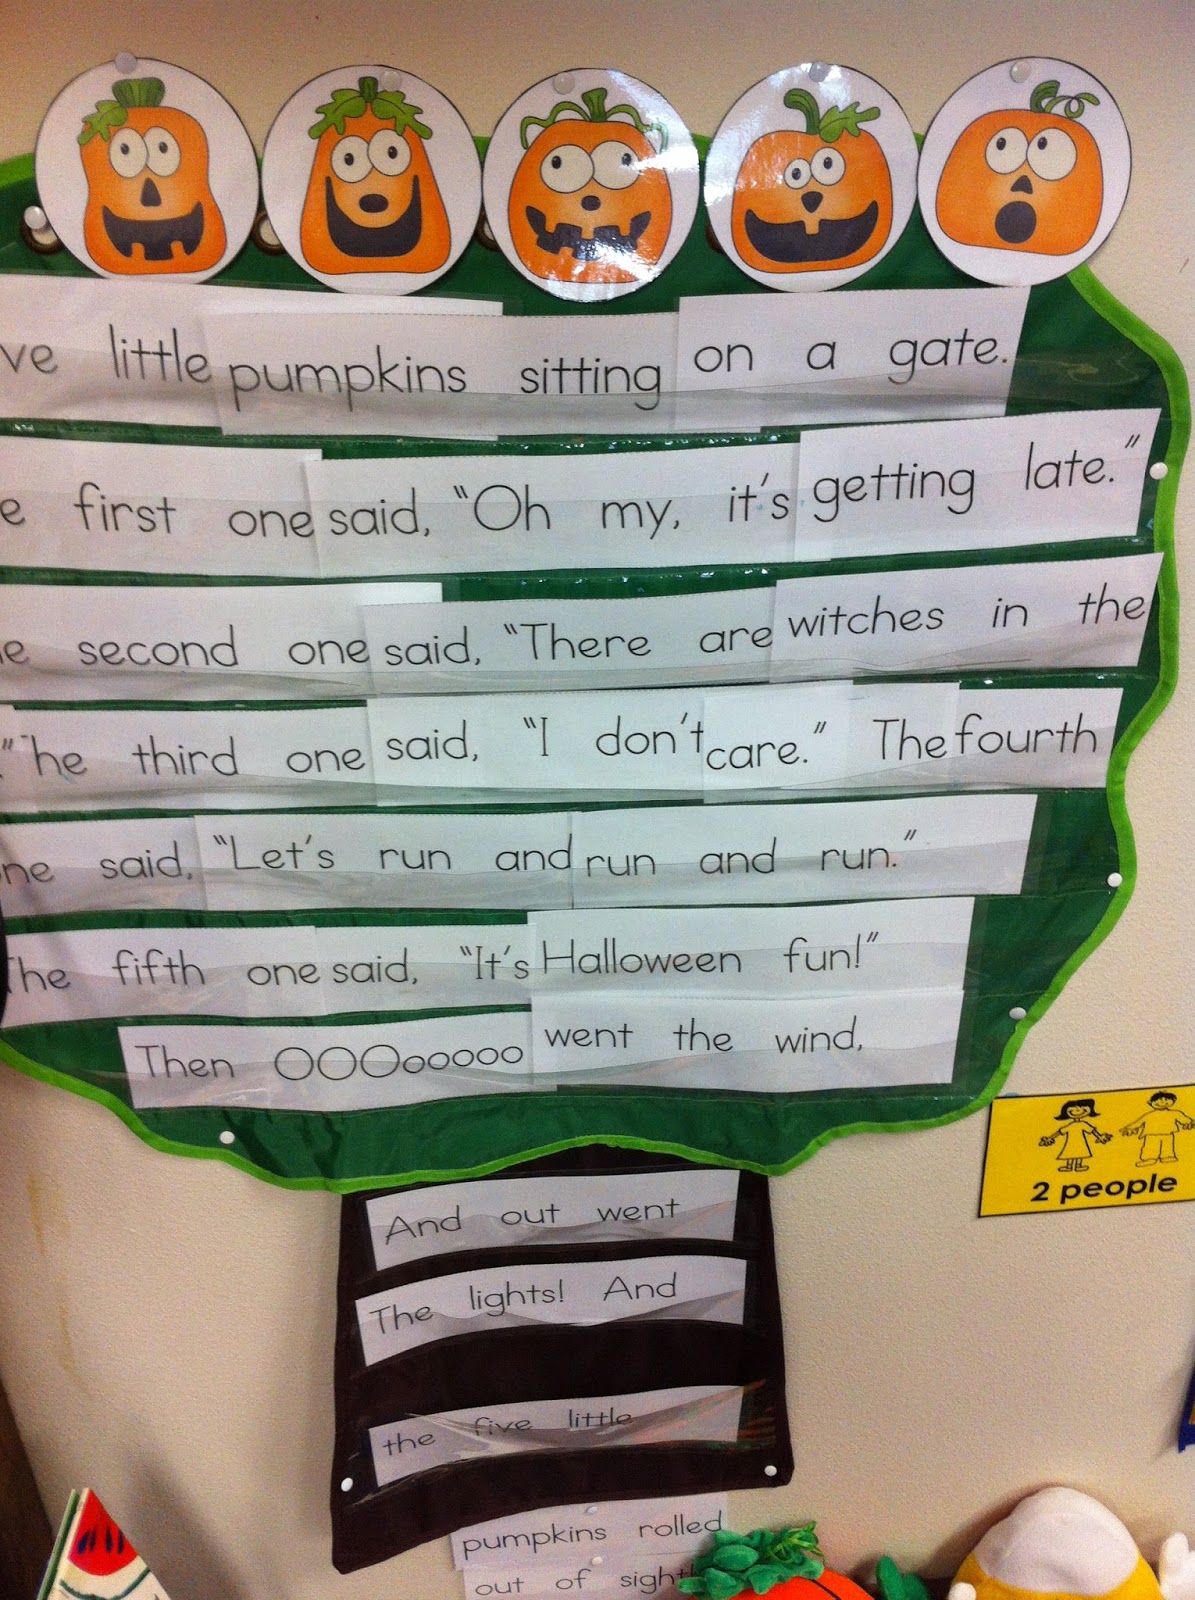 ve little pumpkins sitting on a gate.
e first one said, "Oh my, it's getting late."
e second one said, "There are witches in the
." he third one said, "I don't care." The fourth
ne said, "Let's run and run and run."
The fifth one said, "It's Halloween fun!"
Then OOOooooo went the wind,
And out went
The lights! And
the five little
pumpkins rolled
out of sight
2 people